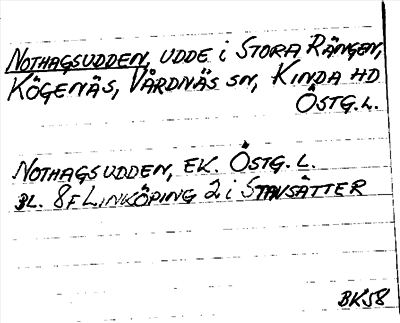 NOTHAGSUDDEN, UDDE i STORA RÄNGEN,
KÖGENÄS, VÅRDNÄS SN, KINDA HD
ÖSTG. L.
NOTHAGSUDDEN, EK. ÖSTG. L.
BL. 8F LINKÖPING 2 i STAVSÄTTER
BK58